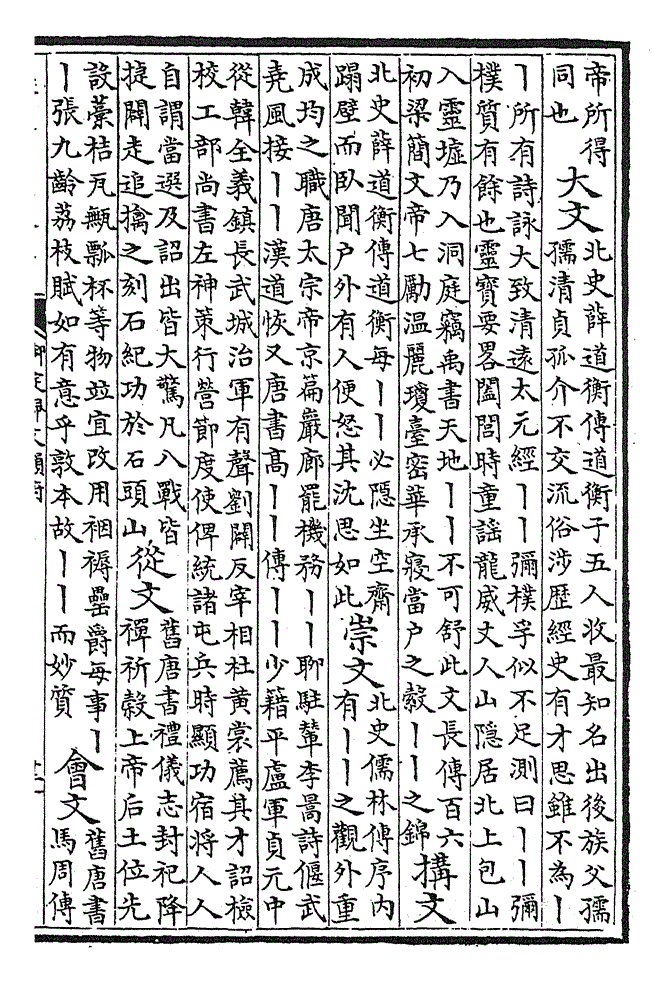 帝所得
同也
大文
北史薛道衡傳道衡子五人收最知名出後族父孺
孺清貞孤介不交流俗涉歷經史有才思雖不為丨
丨所有詩詠大致清遠太元經丨丨彌樸孚似不足測曰丨丨彌
樸質有餘也靈寶要畧闔閭時童謡龍威丈人山隱居北上包山
入靈墟乃入洞庭竊禹書天地丨丨不可舒此文長傳百六
初梁簡文帝七勵温麗瓊臺密華承寢當户之縠丨丨之錦
構文
北史薛道衡傳道衡每丨丨必隱坐空齋
蹋壁而臥聞户外有人便怒其沈思如此
崇文
北史儒林傳序内
有丨丨之觀外重
成均之職唐太宗帝京篇巖廊罷機務丨丨聊駐輦李暠詩偃武
堯風接丨丨漢道恢又唐書高丨丨傳丨丨少籍平盧軍貞元中
從韓全義鎮長武城治軍有聲劉闢反宰相杜黄裳薦其才詔檢
校工部尚書左神策行營節度使俾統諸屯兵時顯功宿將人人
自謂當選及詔出皆大驚凡八戰皆
捷闢走追擒之刻石紀功於石頭山
從文
舊唐書禮儀志封祀降
禪祈穀上帝后土位先
設藁秸瓦甒瓢杯等物竝宜改用裀褥罍爵每事丨
丨張九齡荔枝賦如有意乎敦本故丨丨而妙質
會文
舊唐書
馬周傳